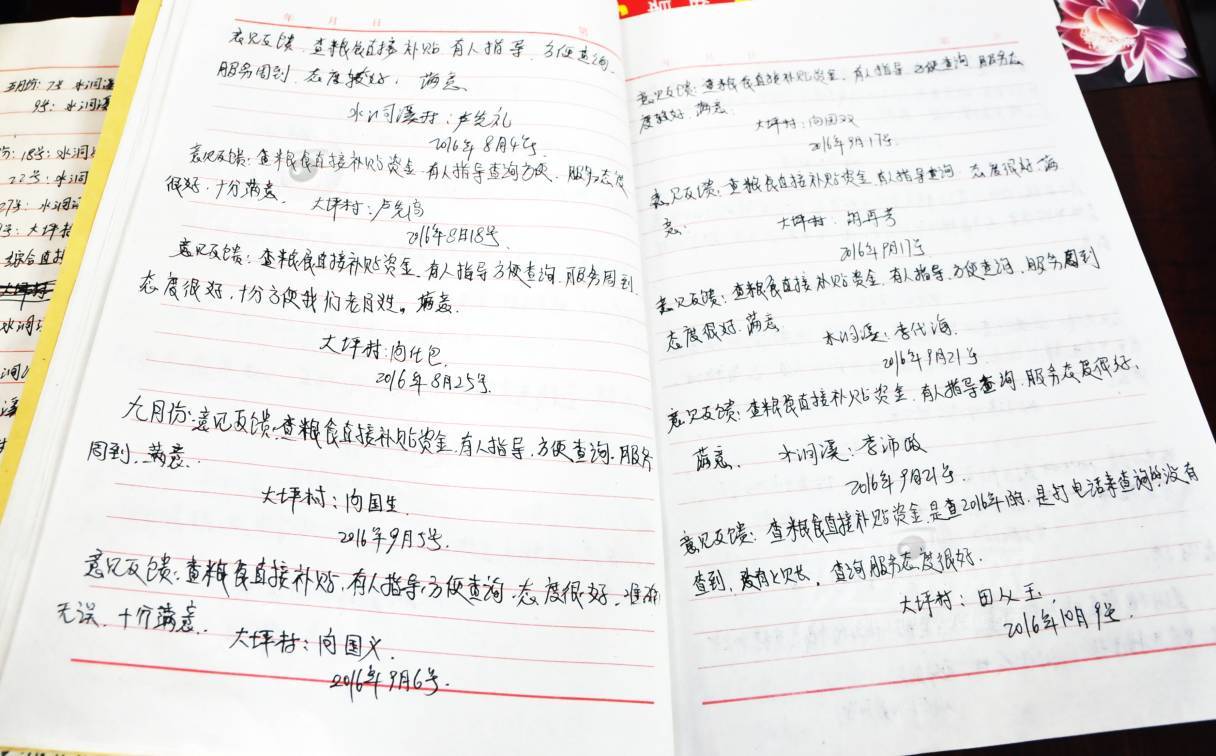 五月份: 7号 水洞溪
9号: 水洞溪
18号: 水洞
22号: 水洞
27号: 水洞
号: 大坪村
综合直补
大坪村
水洞
年 月 日 第
意见反馈: 查粮食直接补贴 有人指导, 方便查询,
服务周到, 态度较好, 满意
水洞溪村: 卢先礼
2016年8月4号
意见反馈: 查粮食直接补贴资金, 有人指导查询方便, 服务态度
很好, 十分满意. 大坪村: 卢先
2016年8月18号
意见反馈: 查粮食直接补贴资金, 有人指导方便查询, 服务周到,
态度很好, 十分方便我们老百姓。满意.
大坪村: 向代
2016年8月25号.
九月份: 意见反馈: 查粮食直接补贴资金, 有人指导, 方便查询, 服务
周到, 满意.
大坪村: 向国生.
2016年9月5号.
意见反馈: 查粮食直接补贴, 有人指导, 方便查询, 态度很好, 准确
无误, 十分满意. 大坪村: 向国义.
2016年9月6号.
意见反馈: 查粮食直接补贴资金, 有人指导, 方便查询, 服务态
度较好, 满意. 大坪村: 向国双
2016年9月17号.
意见反馈: 查粮食直接补贴资金, 有人指导查询, 态度很好, 满
意. 大坪村: 胡再
2016年9月17号
意见反馈: 查粮食直接补贴资金, 有人指导, 方便查询, 服务周到
态度很好, 满意. 水洞溪: 李代海.
2016年9月21号
意见反馈: 查粮食直接补贴资金, 有人指导查询, 服务态度很好,
满意. 水洞溪: 李沛
2016年9月21号
意见反馈: 查粮食直接补贴资金, 是查2016年的, 是打电话来查询的, 没有
查到, 查询服务态度很好.
大坪村: 田
2016年10月9号.